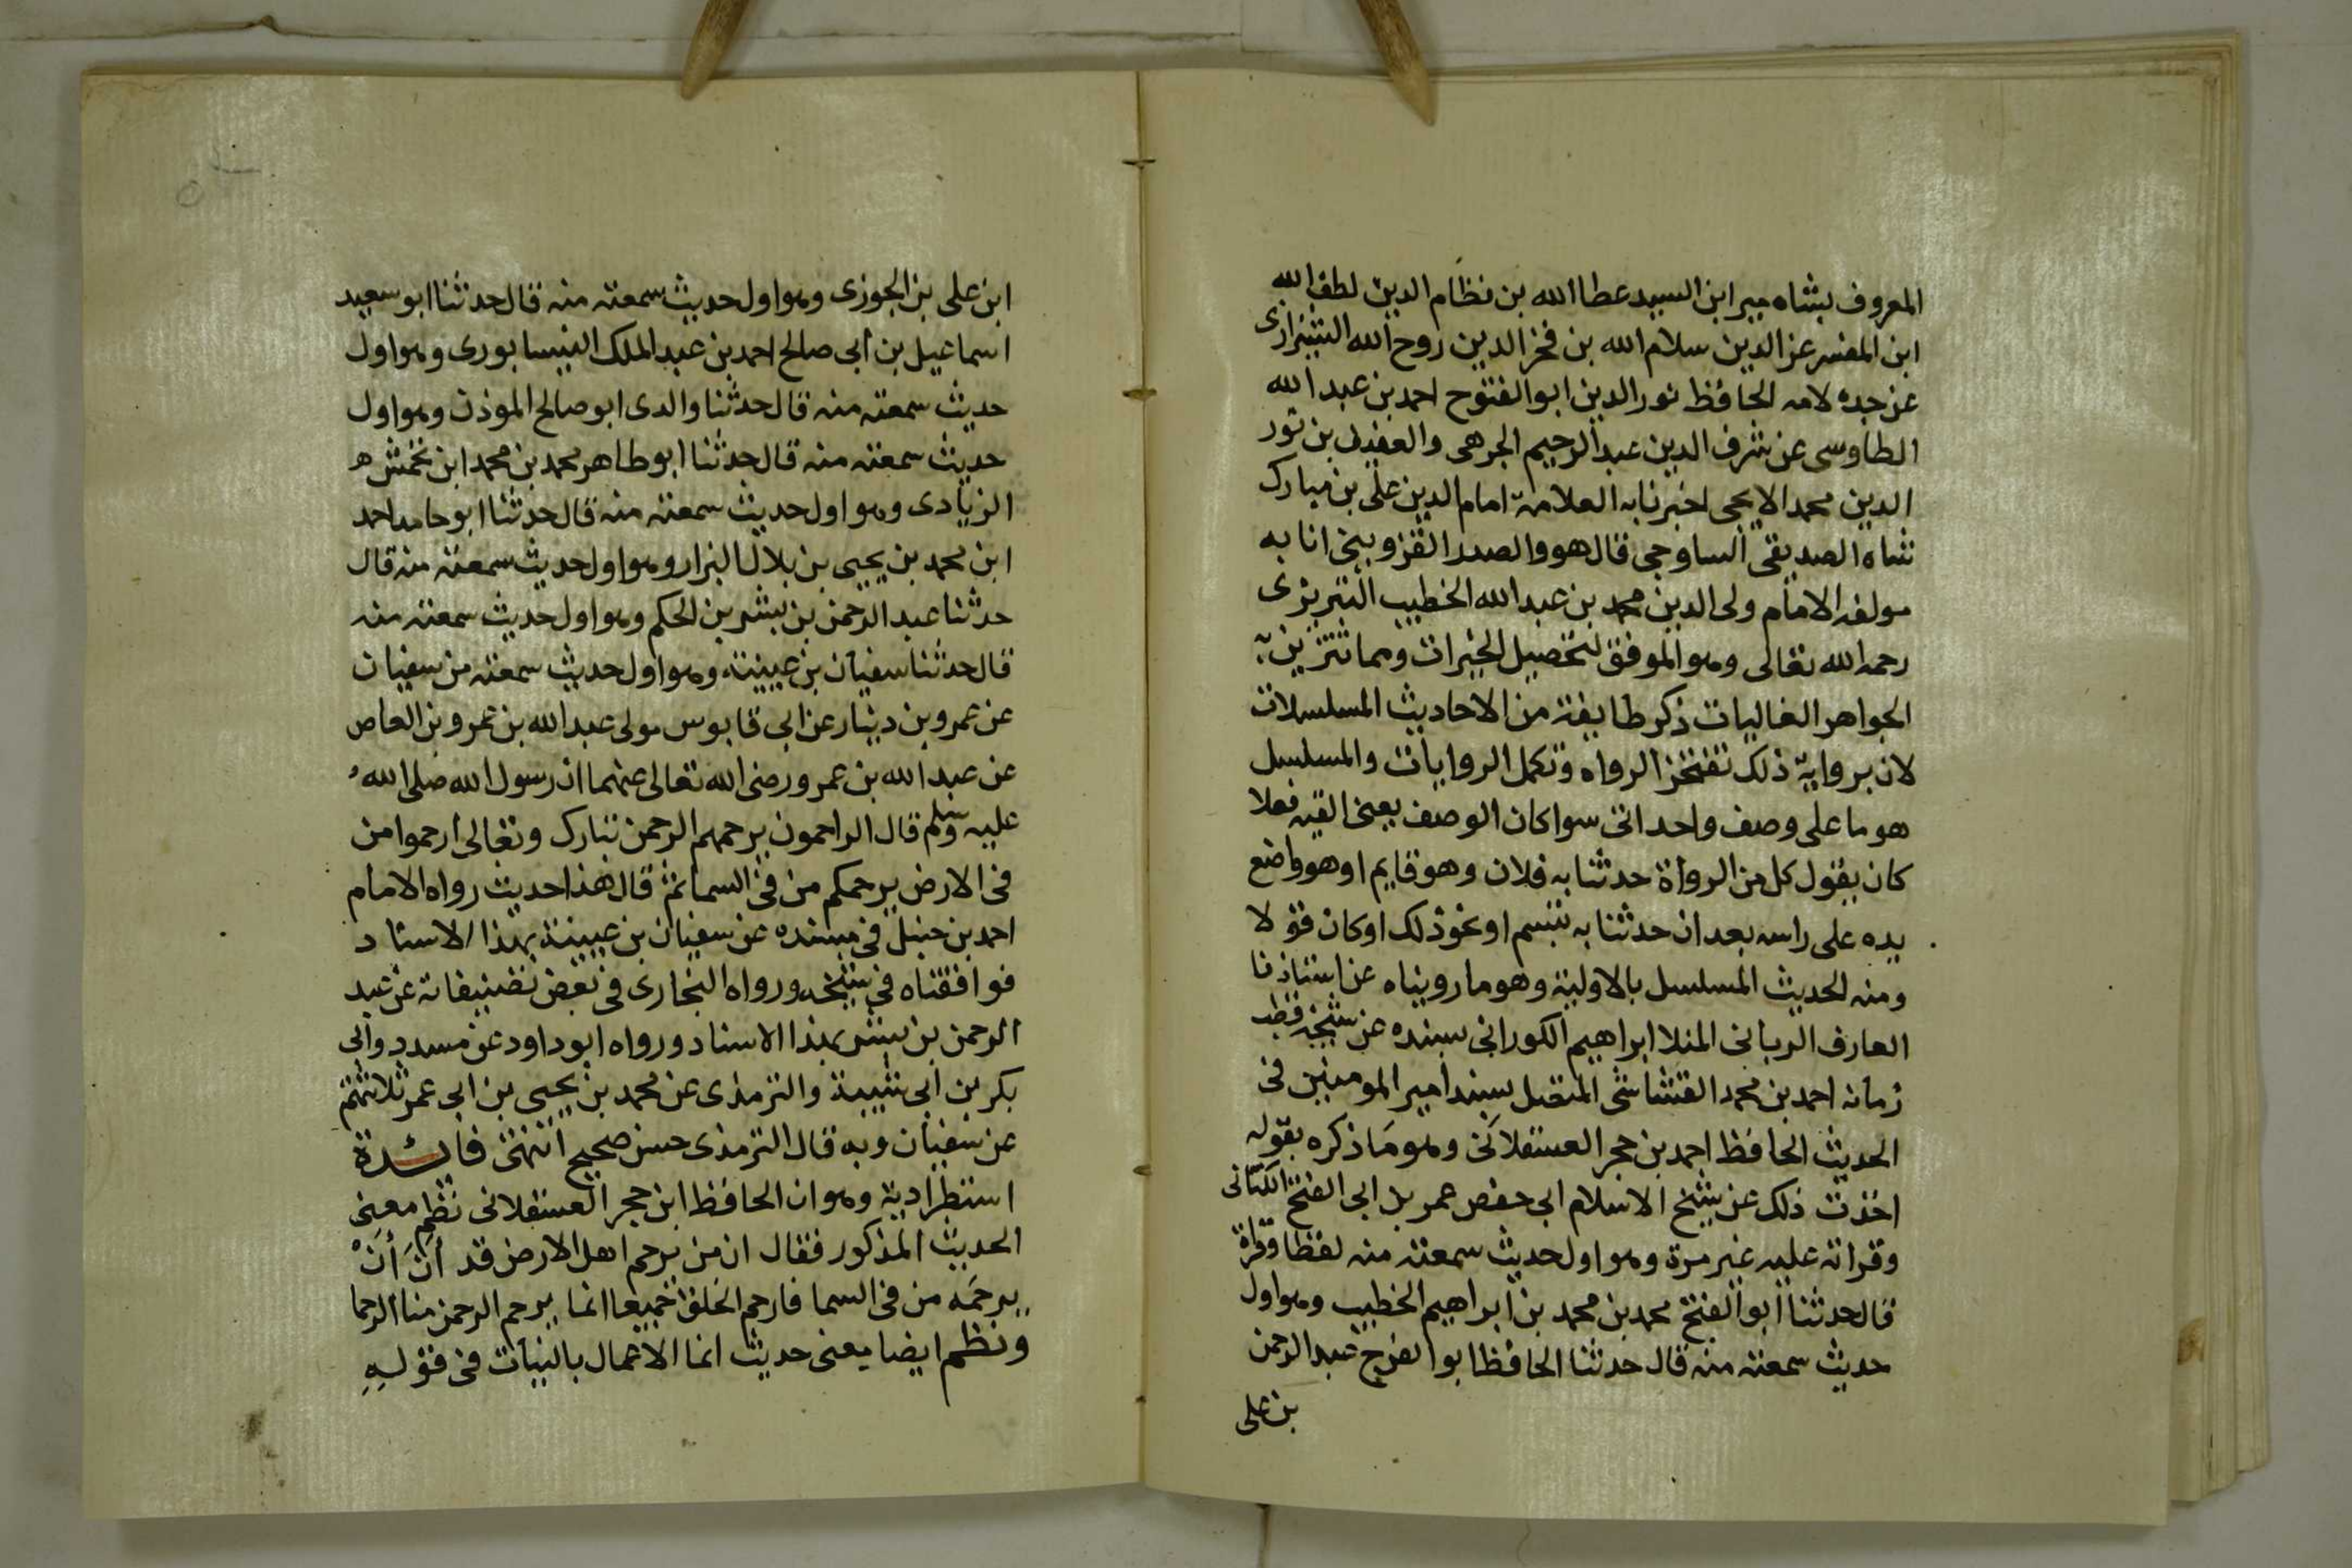 المعروف بشاه مير ابن السيد عطا الله بن نظام الدين لطف الله
ابن المفسر عز الدين سلام الله بن فخر الدين روح الله الشيرازى
عن جده لامه الحافظ نور الدين ابو الفتوح احمد بن عبد الله
الطاوسى عن شرف الدين عبد الرحيم الجرهى والعفيف بن نور
الدين محمد الايجى اخبرنا به العلامة امام الدين على بن مبارك
شاه الصديقى الساوجى قال هو والصدر القزوينى انا به
مولفه الامام ولى الدين محمد بن عبد الله الخطيب التبريزى
رحمه الله تعالى وهو الموفق لتحصيل الخيرات ومما تتزين به
الجواهر الغاليات ذكر طايفة من الاحاديث المسلسلات
لان برواية ذلك تفتخر الرواه وتكمل الروايات والمسلسل
هو ما على وصف واحد اتى سوا كان الوصف يعنى القيه فعلا
كان يقول كل من الرواة حدثنا به فلان وهو قايم او هو واضع
يده على راسه بعد ان حدثنا به تبسم او نحو ذلك او كان قولا
ومنه الحديث المسلسل بالاولية وهو ما رويناه عن استاذنا
العارف الربانى المنلا ابراهيم الكورانى بسنده عن شيخه قطب
زمانه احمد بن محمد القشاشى المتصل بسند امير المومنين فى
الحديث الحافظ احمد بن حجر العسقلانى وهو ما ذكره بقوله
اخذت ذلك عن شيخ الاسلام ابى حفص عمر بل ابى الفتح الكنانى
وقراته عليه غير مرة وهو اول حديث سمعته منه لفظا وقراة
قال حدثنا ابو الفتح محمد بن محمد بن ابراهيم الخطيب وهو اول
حديث سمعته منه قال حدثنا الحافظ ابو الفرج عبد الرحمن
بن على
ابن على بن الجوزى وهو اول حديث سمعته منه قال حدثنا ابو سعيد
اسماعيل بن أبى صالح احمد بن عبد الملك النيسابورى وهو اول
حديث سمعته منه قال حدثنا والدى ابو صالح الموذن وهو اول
حديث سمعته منه قال حدثنا ابو طاهر محمد بن محمد ابن محمش
الزيادى وهو اول حديث سمعته منه قال حدثنا ابو حامد احمد
ابن محمد بن يحيى بن بلال البزار وهو اول حديث سمعته منه قال
حدثنا عبد الرحمن بن بشر بن الحكم وهو اول حديث سمعته منه
قال حدثنا سفيان بن عيينة وهو اول حديث سمعته من سفيان
عن عمرو بن دينار عن ابى قابوس مولى عبد الله بن عمرو بن العاص
عن عبد الله بن عمرو رضى الله تعالى عنهما ان رسول الله صلى الله
عليه وسلم قال الراحمون يرحمهم الرحمن تبارك وتعالى ارحموا من
فى الارض يرحمكم من فى السما ثم قال هذا حديث رواه الامام
احمد بن حنبل فى مسنده عن سفيان بن عيينة بهذا الاسناد
فوافقناه فى شيخه ورواه البخارى فى بعض تصنيفاته عن عبد
الرحمن بن بشر بهذا الاسناد ورواه ابو داود عن مسدد وابى
بكر بن ابى شيبة والترمذى عن محمد بن يحيى بن ابى عمر ثلاثتهم
عن سفيان وبه قال الترمذى حسن صحيح انتهى فائدة
استطرادية وهو ان الحافظ ابن حجر العسقلانى نظم معنى
الحديث المذكور فقال ان من يرحم اهل الارض قد آن أن
يرحمه من فى السما فارحم الخلق جميعا انما يرحم الرحمن منا الرحما
ونظم ايضا معنى حديث انما الاعمال بالنيات فى قوله